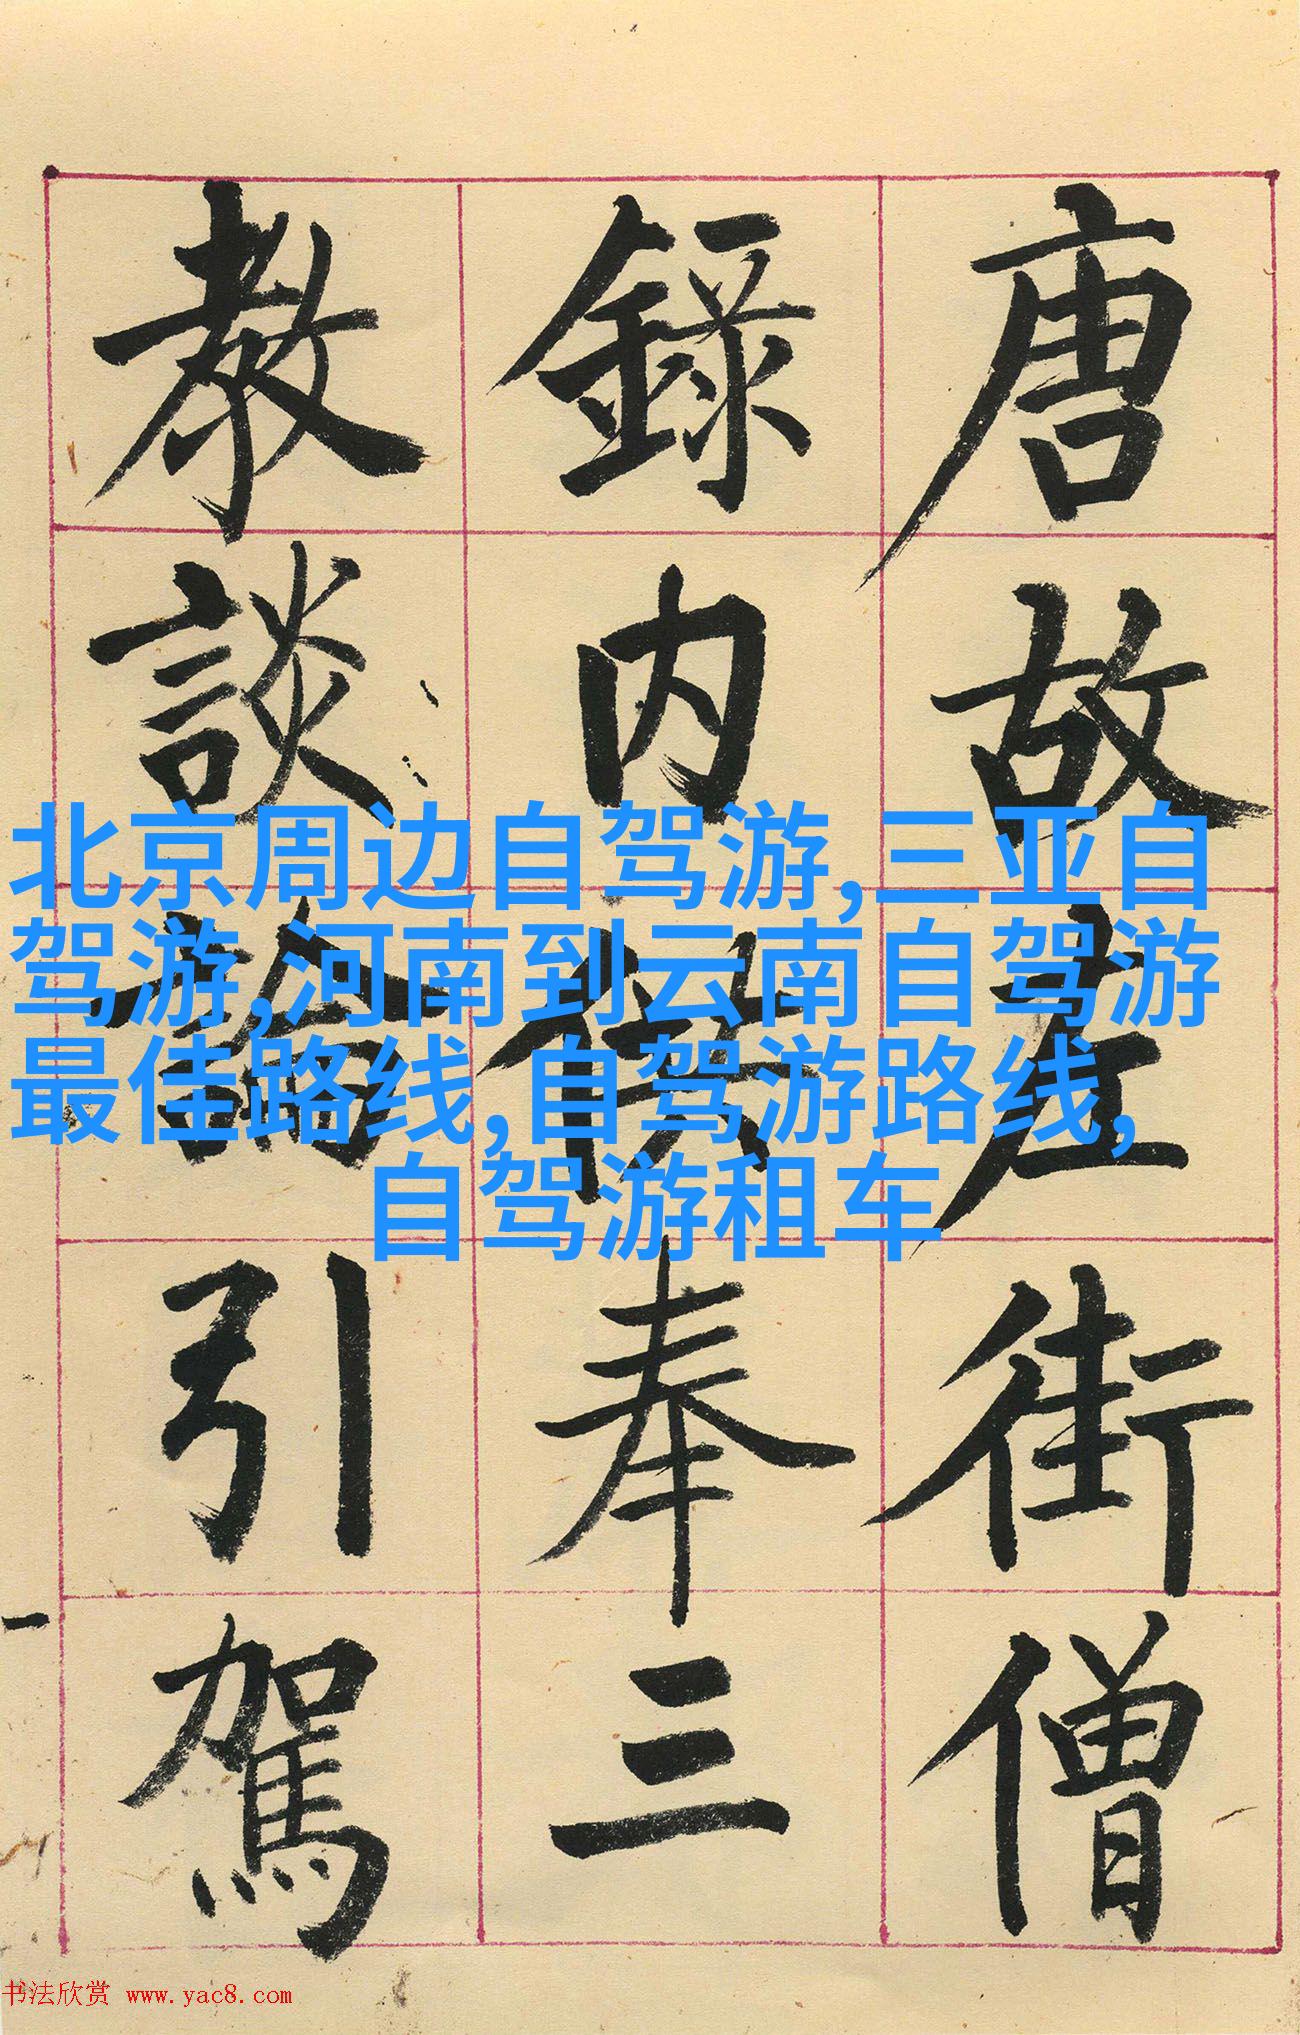 唐故左街僧
錄内供奉三
教談論引駕
北京周边自驾游,三亚自
驾游,河南到云南自驾游
最佳路线,自驾游路线,
自驾游租车
书法欣赏 www.yac8.com